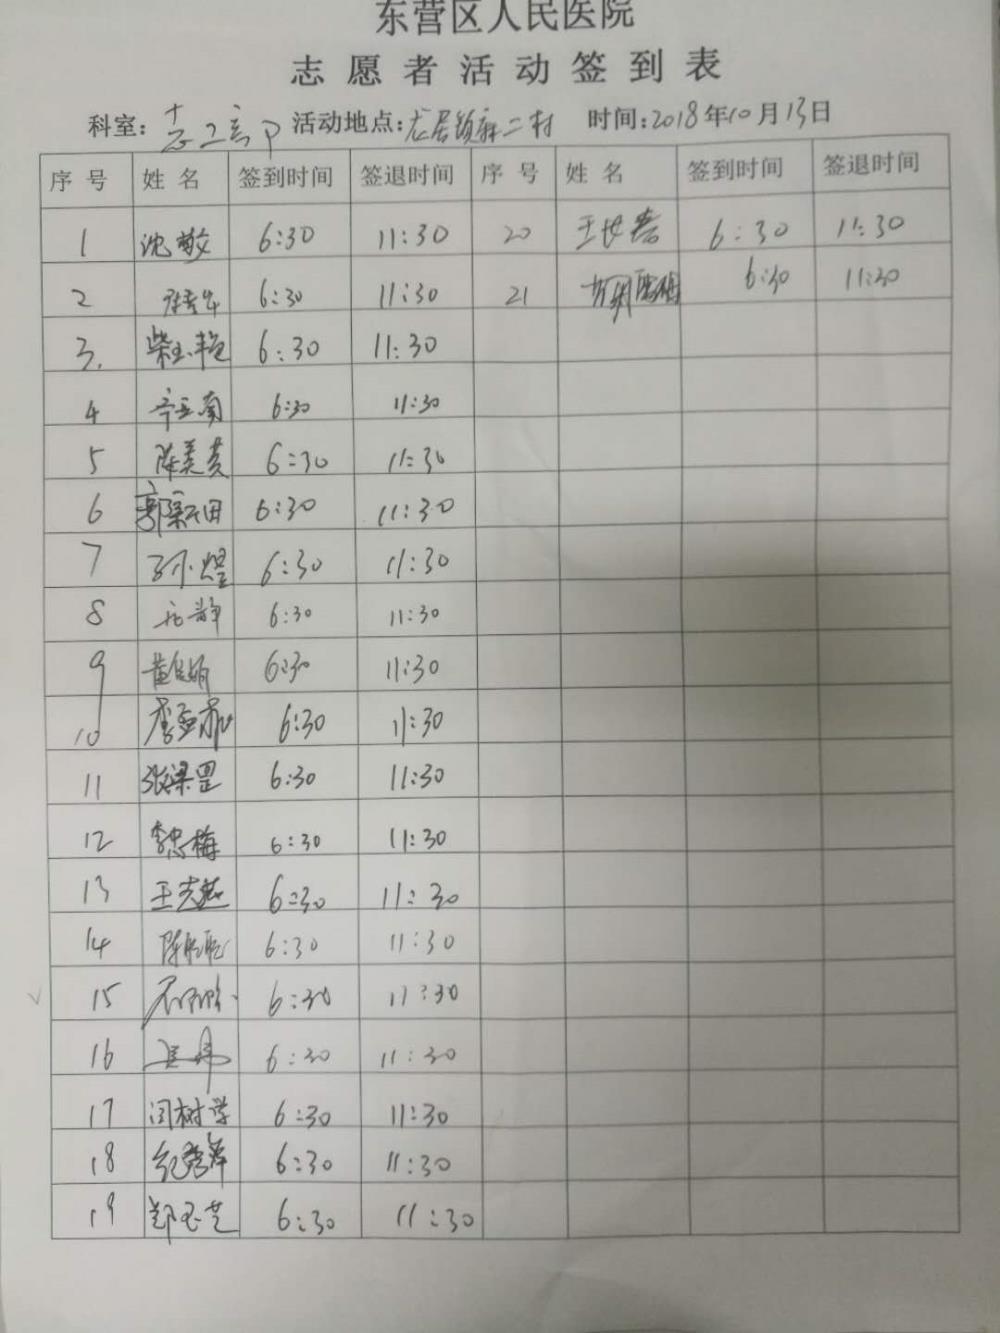 东营区人民医院
志愿者活动签到表
科室: 活动地点:龙居镇 二村 时间:2018年10月13日
序号 姓名 签到时间 签退时间 序号 姓名 签到时间 签退时间
1 沈敬 6:30 11:30 20 王 6:30 11:30
2 6:30 11:30 21 6:30 11:30
3. 柴玉艳 6:30 11:30
4 6:30 11:30
5 陈美 6:30 11:30
6 郭 田 6:30 11:30
7 孙煜 6:30 11:30
8 静 6:30 11:30
9 黄 娟 6:30 11:30
10 李亚 6:30 11:30
11 张梁罡 6:30 11:30
12 李忠梅 6:30 11:30
13 王志燕 6:30 11:30
14 陈 6:30 11:30
15 6:30 11:30
16 6:30 11:30
17 闫树学 6:30 11:30
18 纪秀萍 6:30 11:30
19 郑玉芝 6:30 11:30